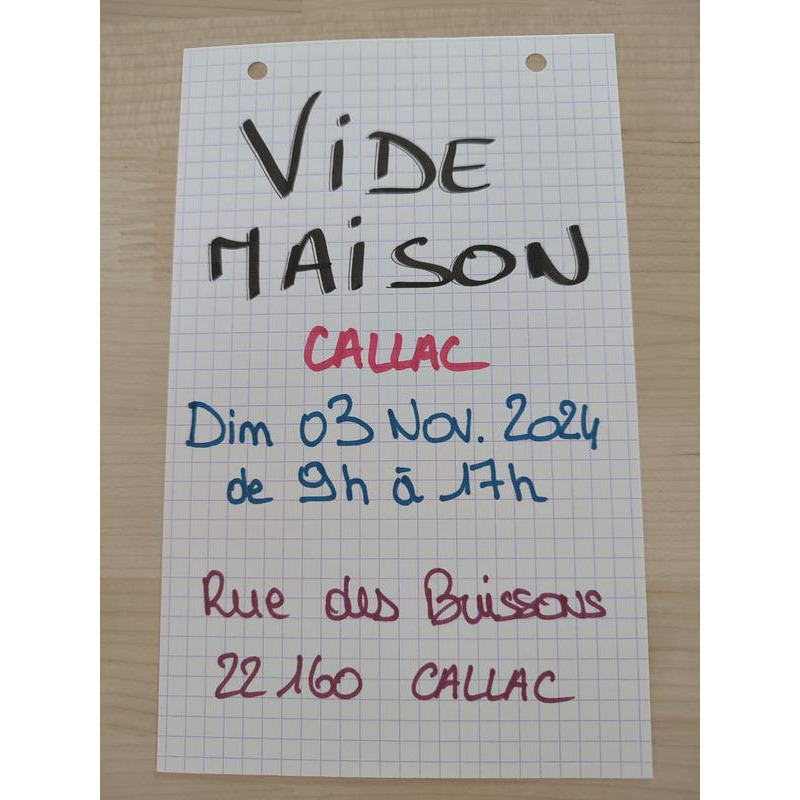 ViDE
MAiSON
CALLAC
Dim 03 Nov. 2024
de 9h à 17h
Rue des Buissons
22160 CALLAC